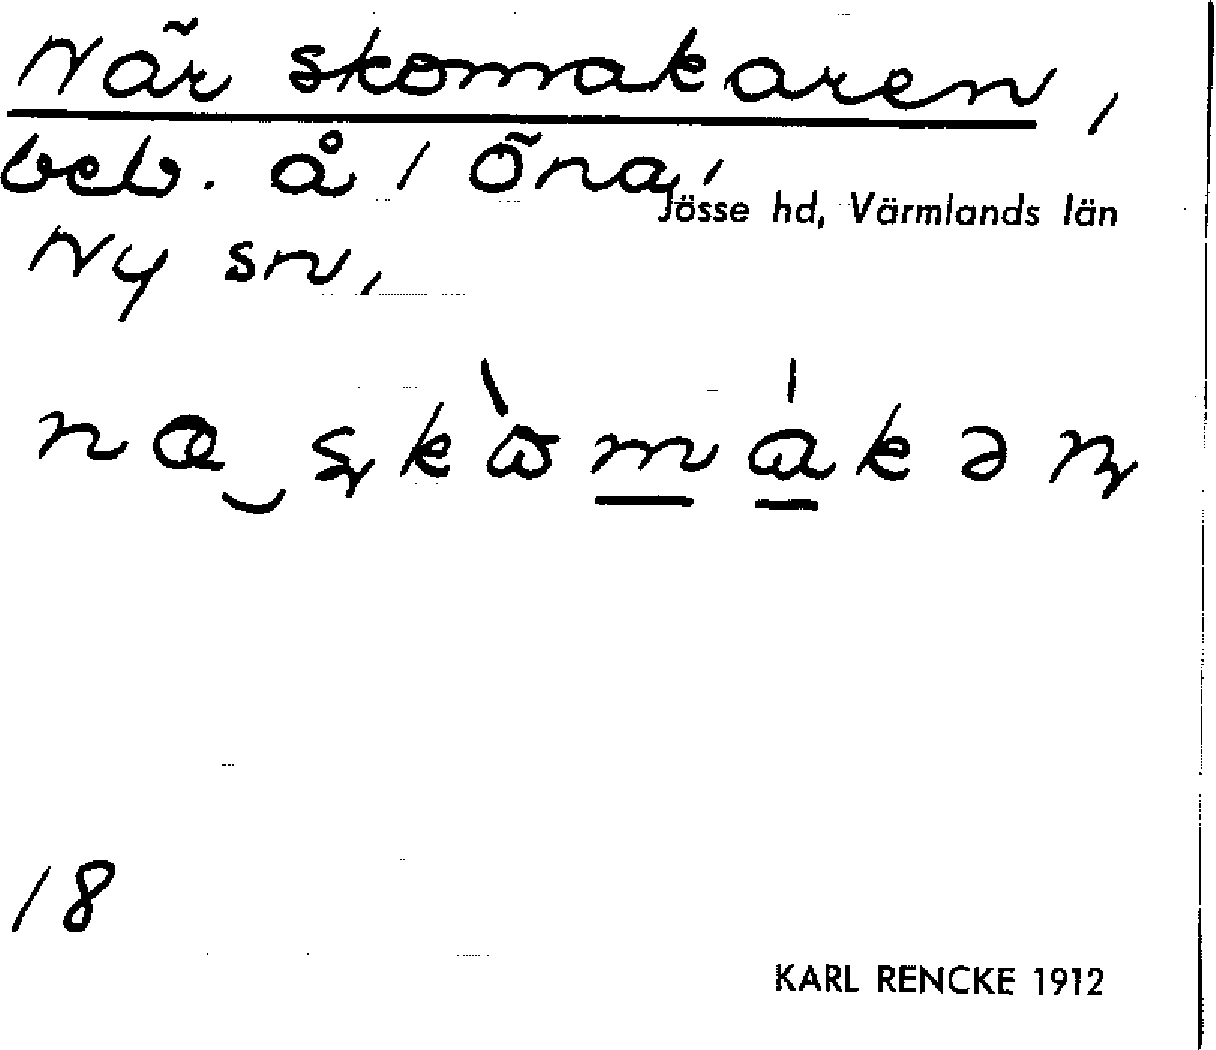 När skomakaren,
beb. å / Öna,
Jösse hd, Värmlands län
Ny sn,
18
KARL RENCKE 1912